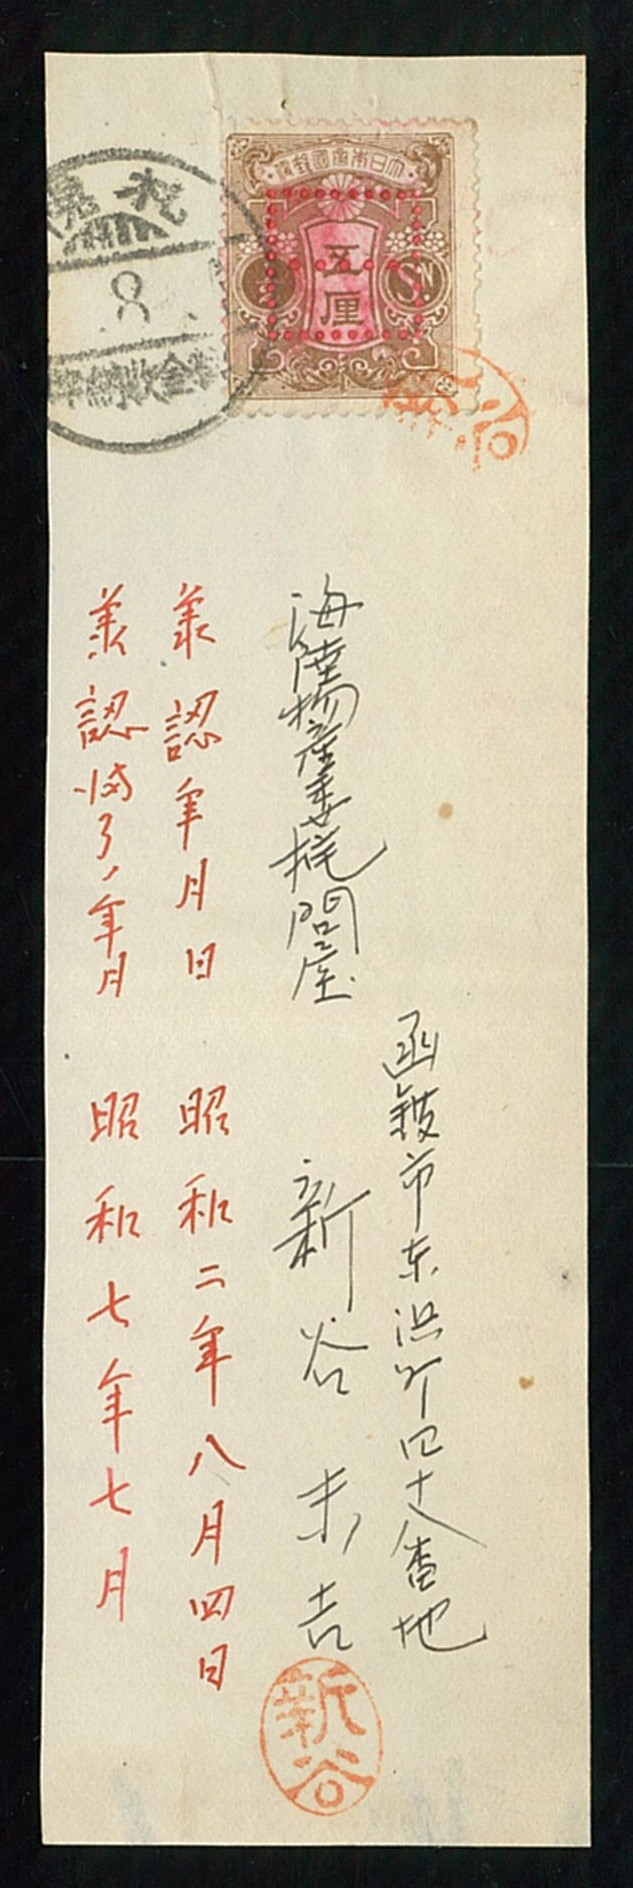 大日本帝國郵便
五厘
½
Sɴ
札幌
8
料金收納
新谷
函館市東浜町四十八番地
海陸物産委托問屋
新谷末吉
新谷
承認年月日 昭和二年八月四日
承認満了ノ年月 昭和七年七月